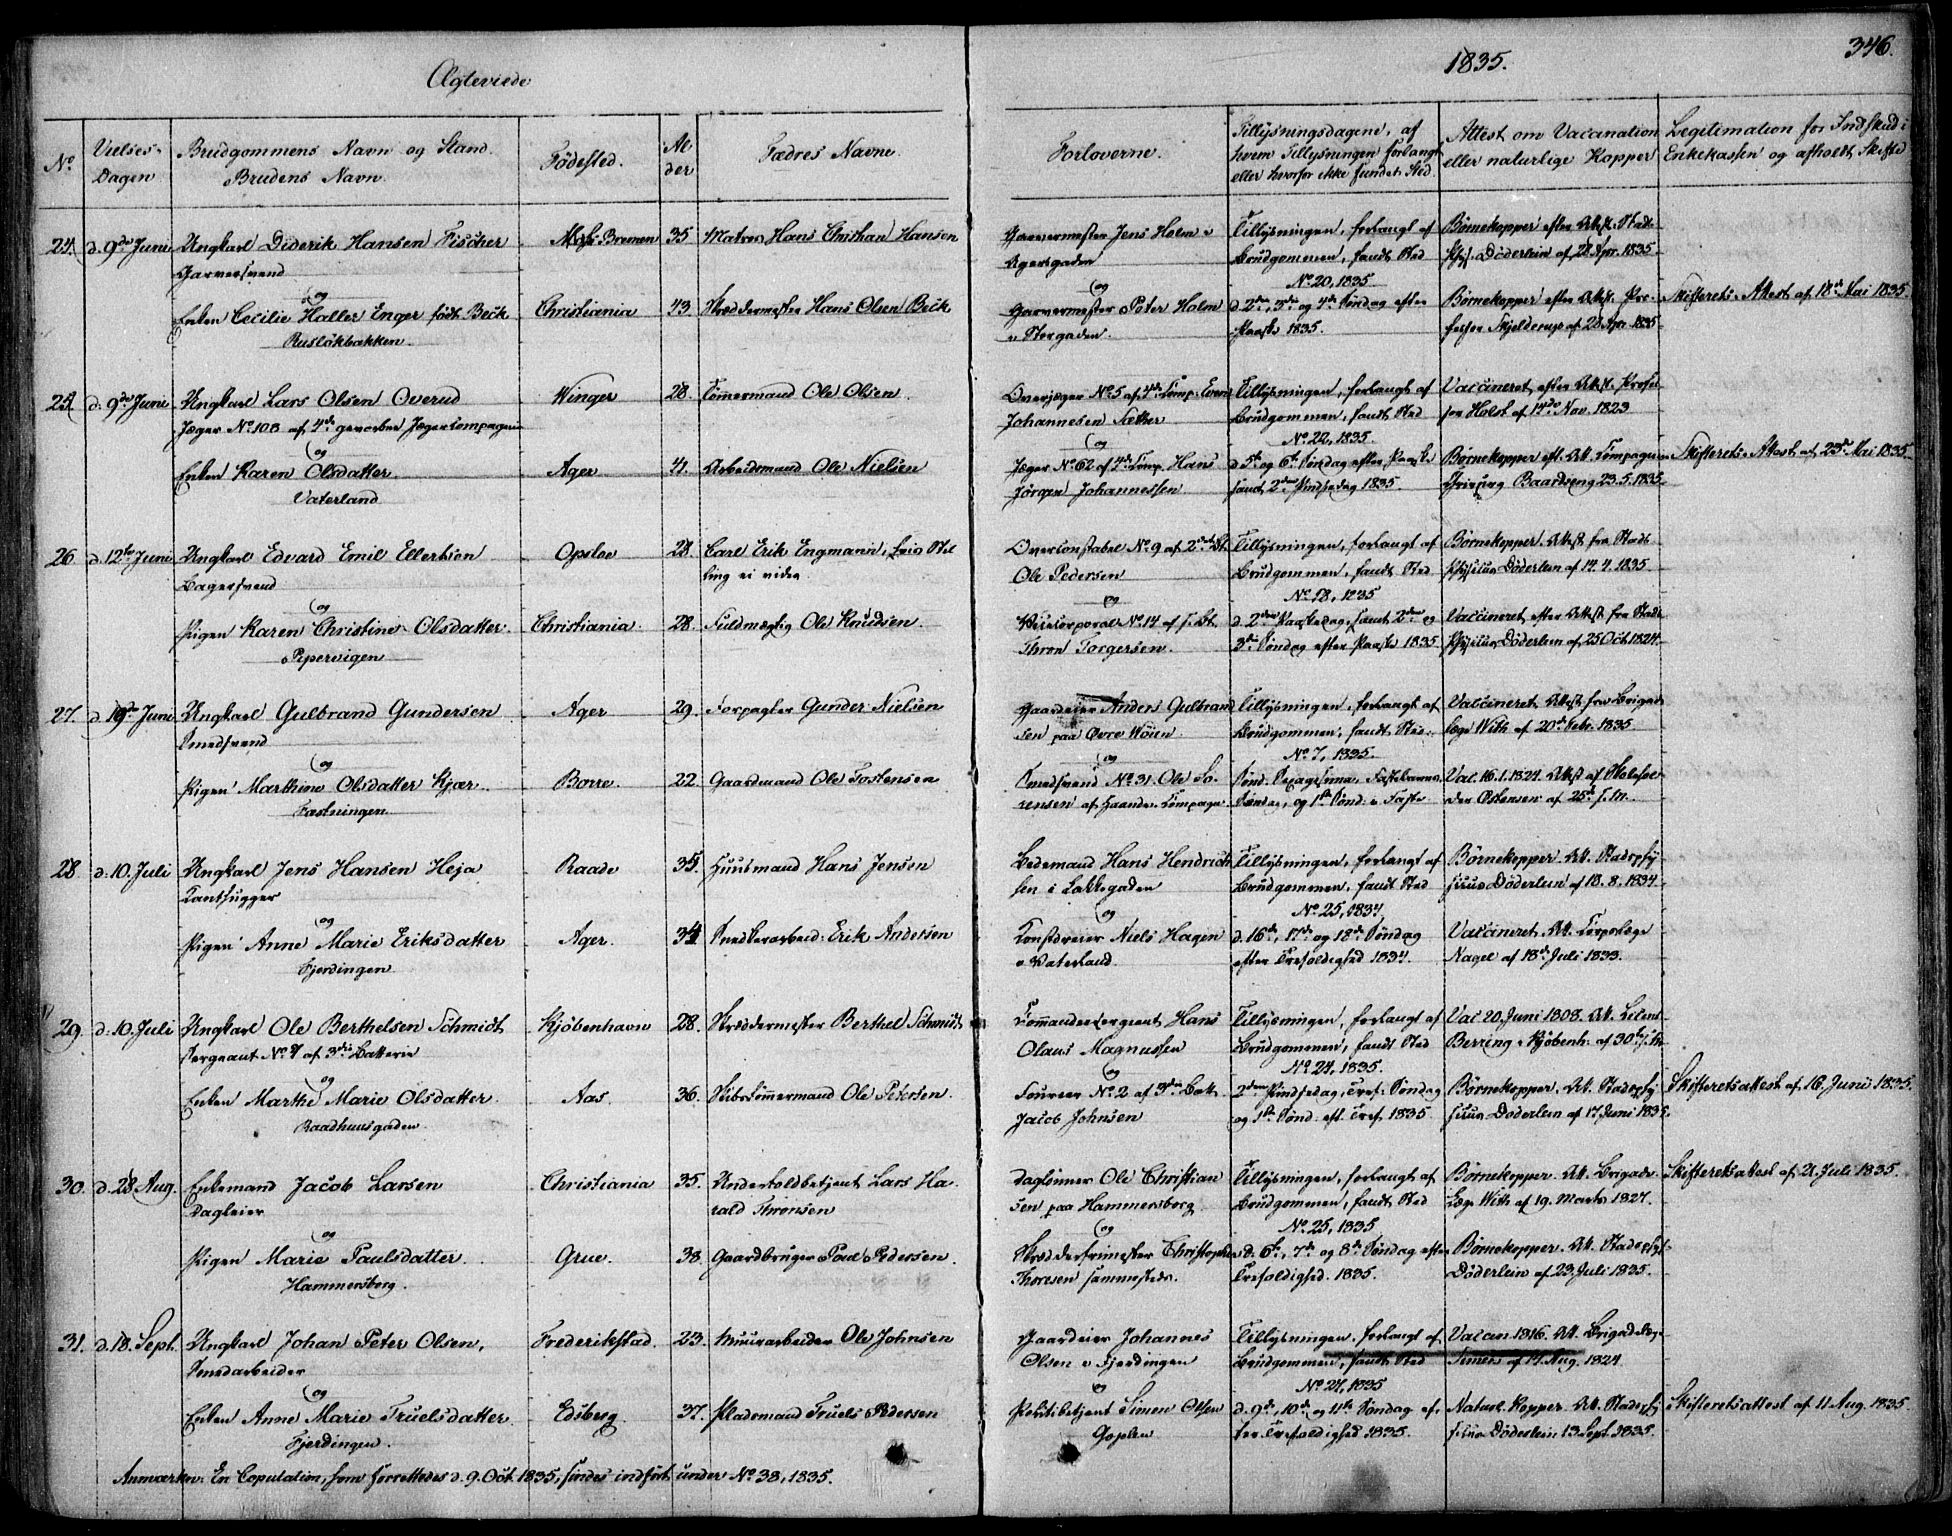 346.
Ægteviede
1835.
No.
Vielses-
Dagen
Brudgommens Navn og Stand.
Brudens Navn.
Fødested.
Al-
der
Fædres Navne.
Forloverne.
Tillysningsdagene, af
hvem Tillysningen forlangt
eller hvorfor ikke fundet Sted
Attest om Vaccination
eller naturlige Kopper
Legitimation for Indskud i
Enkekassen og afholdt Skifte
24. d. 9de Juni Ungkarl Diderik Hansen Fischer Bremen 35 Hans Christian Hansen
Garversvend
og
Enken Cecilie Haller Enger født Beck Christiania 43. Skræddermester Hans Olsen Beck
Rusløkbakken.
Garvermester Jens Holm i
Agersgaden
og
Garvermester Peter Holm
i Storgaden.
Tillysningen, forlangt af
Brudgommen, fandt Sted
No. 20, 1835
d. 2den, 3die og 4de Søndag efter
Paaske 1835.
Børnekopper efter Attest. Stads-
phys. Døderlein af 28 Apr. 1835
Børnekopper efter Attest. Pro-
fessor Skjelderup af 28 Apr. 1835
Skifterets Attest af 18de Mai 1835.
25. d. 9de Juni Ungkarl Lars Olsen Overud Winger 28. Tømmermand Ole Olsen
Jæger No. 108 af 4de gevorbne Jægercompagni
og
Enken Karen Olsdatter Ager 41. Arbeidsmand Ole Nielsen
Vaterland
Overjæger No. 5 af 4de Comp. Even
Johannesen Sæther
og
Jæger No. 62 af 4de Comp. Hans
Jørgen Johannessen
Tillysningen, forlangt af
Brudgommen, fandt Sted
No. 22, 1835.
d. 5te og 6te Søndag efter Paaske
samt 2den Pindsedag 1835.
Vaccineret efter Attest. Profes-
sor Holst af 14de Nov. 1823
Børnekopper eft. Att. Compagni-
Baardseng 23.5.1835.
Skifterets Attest af 23de Mai 1835.
26 d. 12te Juni Ungkarl Edvard Emil Ellertsen Opsloe 28. Carl Erik Engmann,
Bagersvend
og
Pigen Karen Christine Olsdatter. Christiania 28. Fuldmægtig Ole Knudsen
Pipervigen
Overconstabel No. 9 af 2det Bt.
Ole Pedersen
og
Vicecorporal No. 14 af s. Bt.
Thron Torgersen.
Tillysningen, forlangt af
Brudgommen, fandt Sted
No. 18, 1835
d. 2den Paaskedag, samt 2den og
3die Søndag efter Paaske 1835
Børnekopper. Attest fra Stads
physicus Døderlein af 14.4.1835.
Vaccineret efter Attest fra Stads
physicus Døderlein af 25 Oct. 1824
27. d. 19de Juni Ungkarl Gulbrand Gundersen Ager 29. Forpagter Gunder Nielsen
Smedsvend
og
Pigen Marthine Olsdatter Kjær. Borre 22. Gaardmand Ole Tostensen
Fæstningen
Gaardeier Anden Gulbrand-
sen paa Øvre Wøien
og
Smedsvend No. 31. Ole So-
rensen af Haandv. Compagni
Tillysningen, forlangt af
Brudgommen, fandt Sted.
No. 7, 1835.
Sønd. Sexagesima, Fastelavns-
Søndag, og 1ste Sønd. i Faste
Vaccineret. Attest fra Brigade
læge With af 20de Febr. 1835.
Vac. 16.1.1824. Attest af Skolehol-
der Ostensen af 25de s. M.
28 d. 10. Juli Ungkarl Jens Hansen Heja Raade 35. Huusmand Hans Jensen
Tanthugger
og
Pigen Anne Marie Eriksdatter Ager. 34 Snedkerarbeid: Erik Andersen
Fjerdingen
Bedemand Hans Hendrich-
sen i Lakkegaden
og
Kunstdreier Niels Hagen
i Vaterland.
Tillysningen, forlangt af
Brudgommen, fandt Sted
No. 25, 1834
d. 16de, 17de og 18de Søndag
efter Trefoldighed 1834.
Børnekopper. Att. Stadsphy-
sicus Døderlein af 18.8.1834.
Vaccineret. Att. Corpslæge
Nagel af 18de Juli 1833.
29. d. 10. Juli Ungkarl Ole Berthelsen Schmidt Kjøbenhavn 28. Skræddermester Berthel Schmidt
Sergeant No. 7 af 3die Batterie
og
Enken Marthe Marie Olsdatter. Aas 36. Skibstømmermand Ole Petersen.
Raadhuusgaden
Commandeersergeant Hans
Olaus Magnussen
og
Foureer No. 2 af 3die Batt.
Jacob Johnsen
Tillysningen, forlangt af
Brudgommen, fandt Sted
No. 24, 1835.
2den Pindsedag, Tref. Søndag
og 1ste Sønd. eft. Tref. 1835
Vac 20. Juni 1808. Att.
Berring i Kjøbenh. af 30te
Børnekopper. Att. Stadsphy-
sicus Døderlein af 17 Juni 1835.
Skifteretsattest af 16. Juni 1835.
30. d. 28 Aug. Enkemand Jacob Larsen Christiania 35. Undertoldbetjent Lars Ha-
Dagleier rald Thronsen
og
Pigen Marie Paulsdatter. Grue. 38. Gaardbruger Poul Pedersen
Hammersberg.
Daglønner Ole Christian-
sen paa Hammersborg
og
Skrædderfrimester Christopher
Thoresen sammesteds.
Tillysningen, forlangt af
Brudgommen, fandt Sted
No. 25, 1835
d. 6te, 7de og 8de Søndag efter
Trefoldighed. 1835.
Børnekopper. Att. Brigade
Læge With af 19. Marts 1827.
Børnekopper. Att. Stadsphys.
Døderlein af 23. Juli 1835.
Skifteretsattest af 21. Juli 1835.
31. d. 18. Sept. Ungkarl Johan Peter Olsen, Frederikstad. 23. Muurarbeider Ole Johnsen
Smedarbeider
og
Enken Anne Marie Truelsdatter Edsberg 37. Pladsmand Truels Pedersen
Fjerdingen.
Gaardeier Johannes
Olsen i Fjerdingen
og
Politibetjent Simen Olsen
Goplen
Tillysningen. forlangt af
Brudgommen, fandt Sted
No. 27, 1835
d. 9de, 10de og 11te Søndag ef-
ter Trefoldighed 1835.
Vaccin 1816. Att. Brigadelæge
af 14 Aug. 1824
Naturl. Kopper. Att. Stadsphy-
sicus Døderlein 13 Sept. 1835.
Skifteretsattest af 11 Aug. 1835.
Anmærkn: En Copulation, som forrettedes d. 9. Oct. 1835, findes indført under No. 38, 1835.